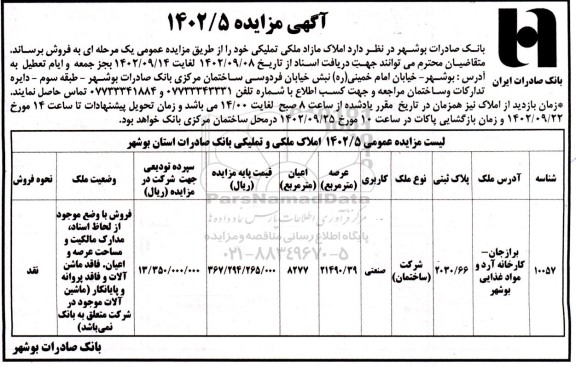 آگهی مزایده ۱۴۰۲/۵
بانک صادرات ایران
بانک صادرات بوشهر در نظر دارد املاک مازاد ملکی تملیکی خود را از طریق مزایده عمومی یک مرحله ای به فروش برساند.
متقاضیان محترم می توانند جهت دریافت اسناد از تاریخ ۱۴۰۲/۰۹/۰۸ لغایت ۱۴۰۲/۰۹/۱۴ بجز جمعه و ایام تعطیل به
آدرس : بوشهر - خیابان امام خمینی(ره) نبش خیابان فردوسی ساختمان مرکزی بانک صادرات بوشهر - طبقه سوم - دایره
تدارکات وساختمان مراجعه و جهت کسب اطلاع با شماره تلفن ۰۷۷۳۳۳۴۳۳۳۱ و ۰۷۷۳۳۳۴۱۸۸۴ تماس حاصل نمایند.
*زمان بازدید از املاک نیز همزمان در تاریخ مقرر یادشده از ساعت ۸ صبح لغایت ۱۴/۰۰ می باشد و زمان تحویل پیشنهادات تا ساعت ۱۴ مورخ
۱۴۰۲/۰۹/۲۲ و زمان بازگشایی پاکات در ساعت ۱۰ مورخ ۱۴۰۲/۰۹/۲۵ درمحل ساختمان مرکزی بانک خواهد بود.
لیست مزایده عمومی ۱۴۰۲/۵ املاک ملکی و تملیکی بانک صادرات استان بوشهر
شناسه آدرس ملک پلاک ثبتی نوع ملک کاربری عرصه (مترمربع) اعیان (مترمربع) قیمت پایه مزایده (ریال) سپرده تودیعی جهت شرکت در مزایده (ریال) وضعیت ملک نحوه فروش
۱۰۰۵۷ برازجان– کارخانه آرد و مواد غذایی بوشهر ۲۰۳۰/۶۶ شرکت (ساختمان) صنعتی ۲۱۴۹۰/۳۹ ۸۲۷۷ ۳۶۷/۲۹۴/۲۶۵/۰۰۰ ۱۳/۳۵۰/۰۰۰/۰۰۰ فروش با وضع موجود از لحاظ اسناد، مدارک مالکیت و مساحت عرصه و اعیان. فاقد ماشن آلات و فاقد پروانه و پایانکار (ماشین آلات موجود در شرکت متعلق به بانک نمی‌باشد) نقد
ParsNamadData
مرکز فرآوری اطلاعات پارس نماد داده ها
پایگاه اطلاع رسانی مناقصه و مزایده
۰۲۱-۸۸۳۴۹۶۷۰-۵
بانک صادرات بوشهر